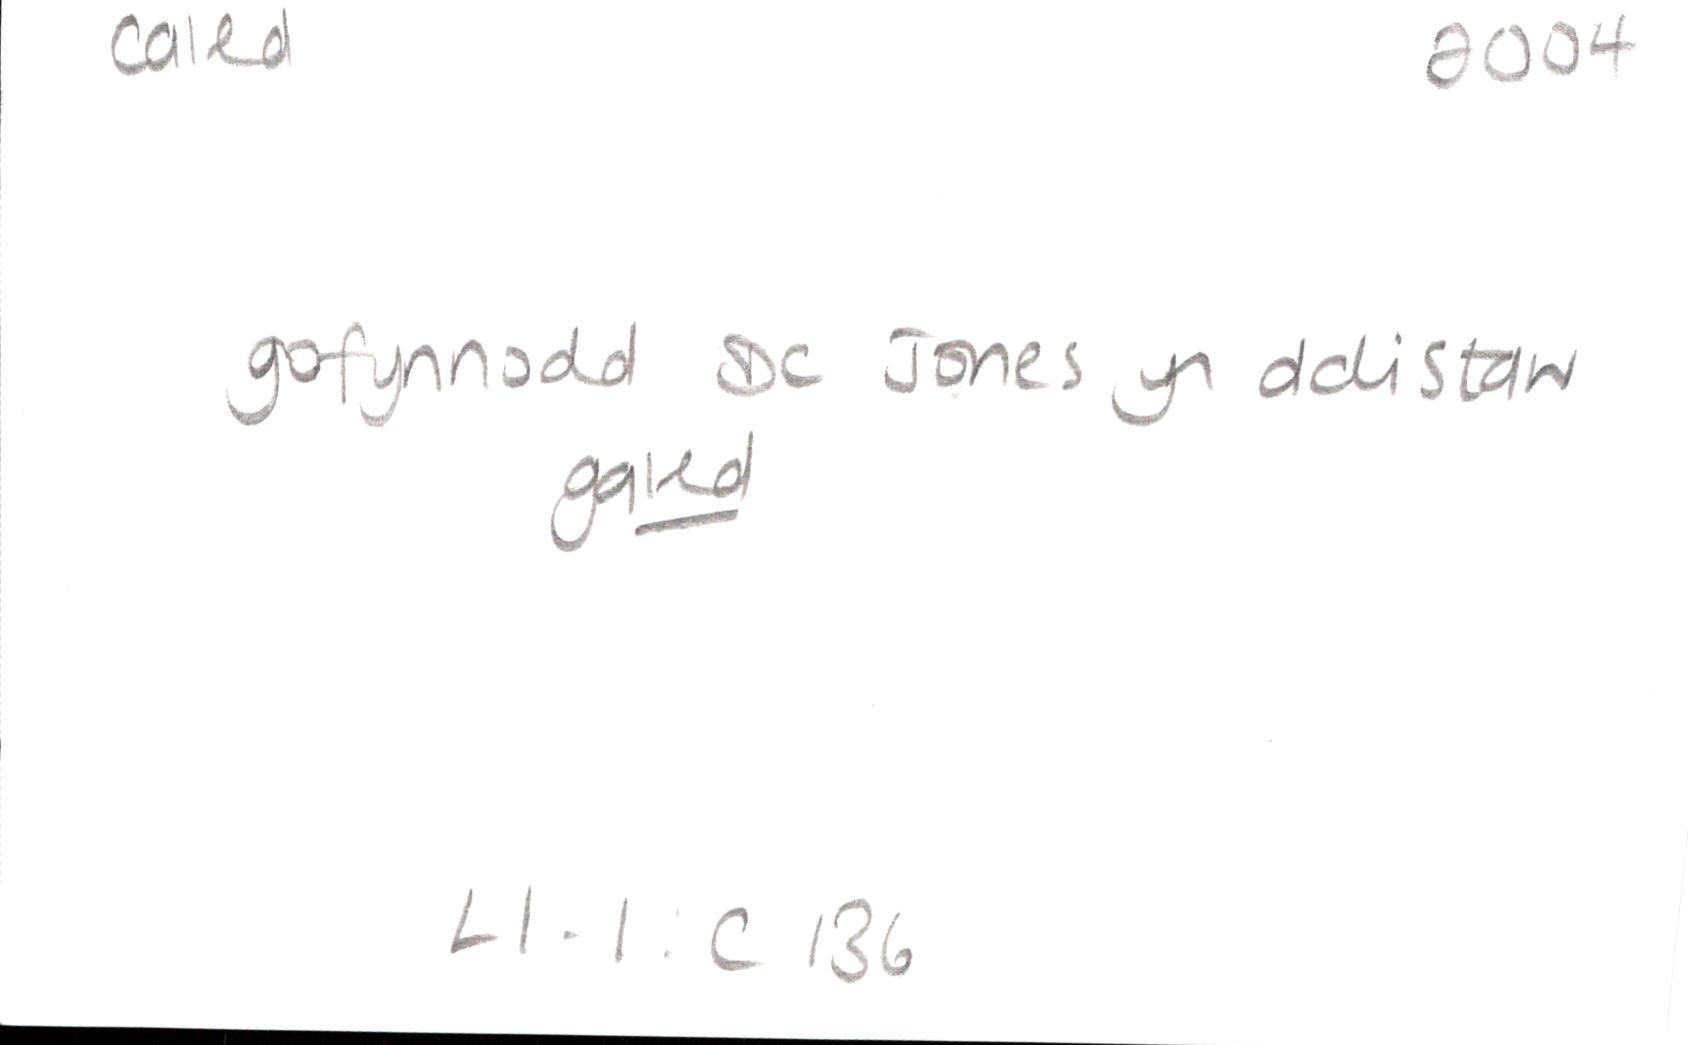 caled 2004
gofynnodd DC Jones yn ddistaw
galed
Ll. I.: C 136